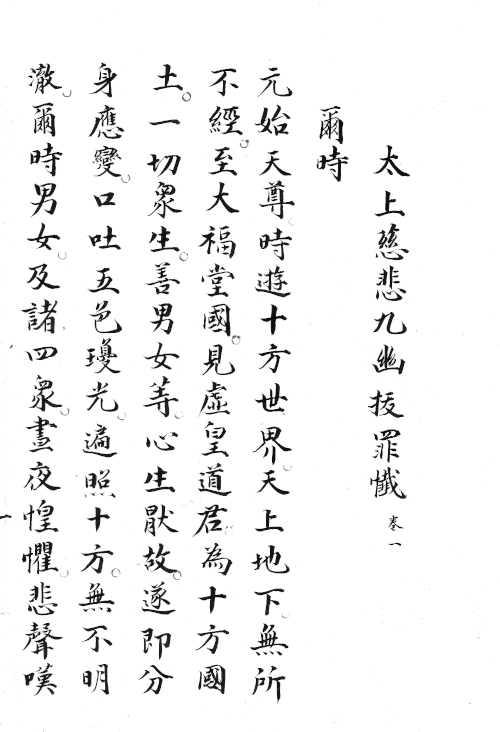 太上慈悲九幽拔罪懺 卷一
爾時
元始天尊時遊十方世界天上地下無所
不經。至大福堂國。見虛皇道君為十方國
土。一切眾生。善男女等。心生厭故。遂即分
身應變。口吐五色瓊光。遍照十方。無不明
澈。爾時男女。及諸四眾。晝夜惶懼。悲聲嘆
一